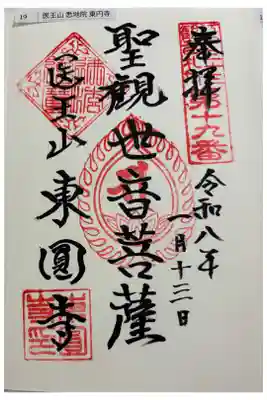 19 医王山 悉地院 東円寺
奉拝
第十九番
令和八年
一月十三日
聖観世音菩薩
医王山東圓寺